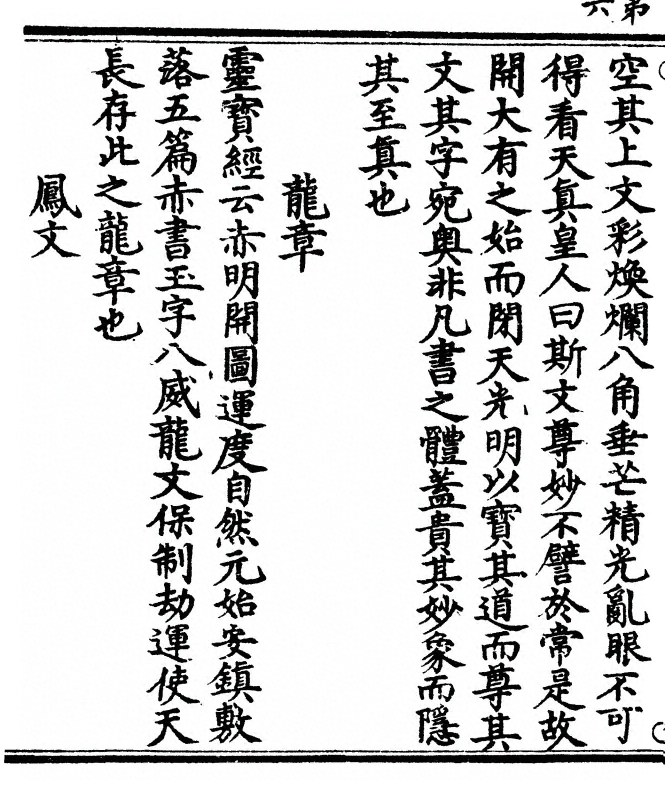 第六
空其上文彩煥爛八角垂芒精光亂眼不可
得看天眞皇人曰斯文尊妙不譬於常是故
開大有之始而閉天光明以寶其道而尊其
文其字宛奧非凡書之體蓋貴其妙象而隱
其至眞也
龍章
靈寶經云赤明開圖運度自然元始安鎮敷
落五篇赤書玉字八威龍文保制劫運使天
長存此之龍章也
鳳文